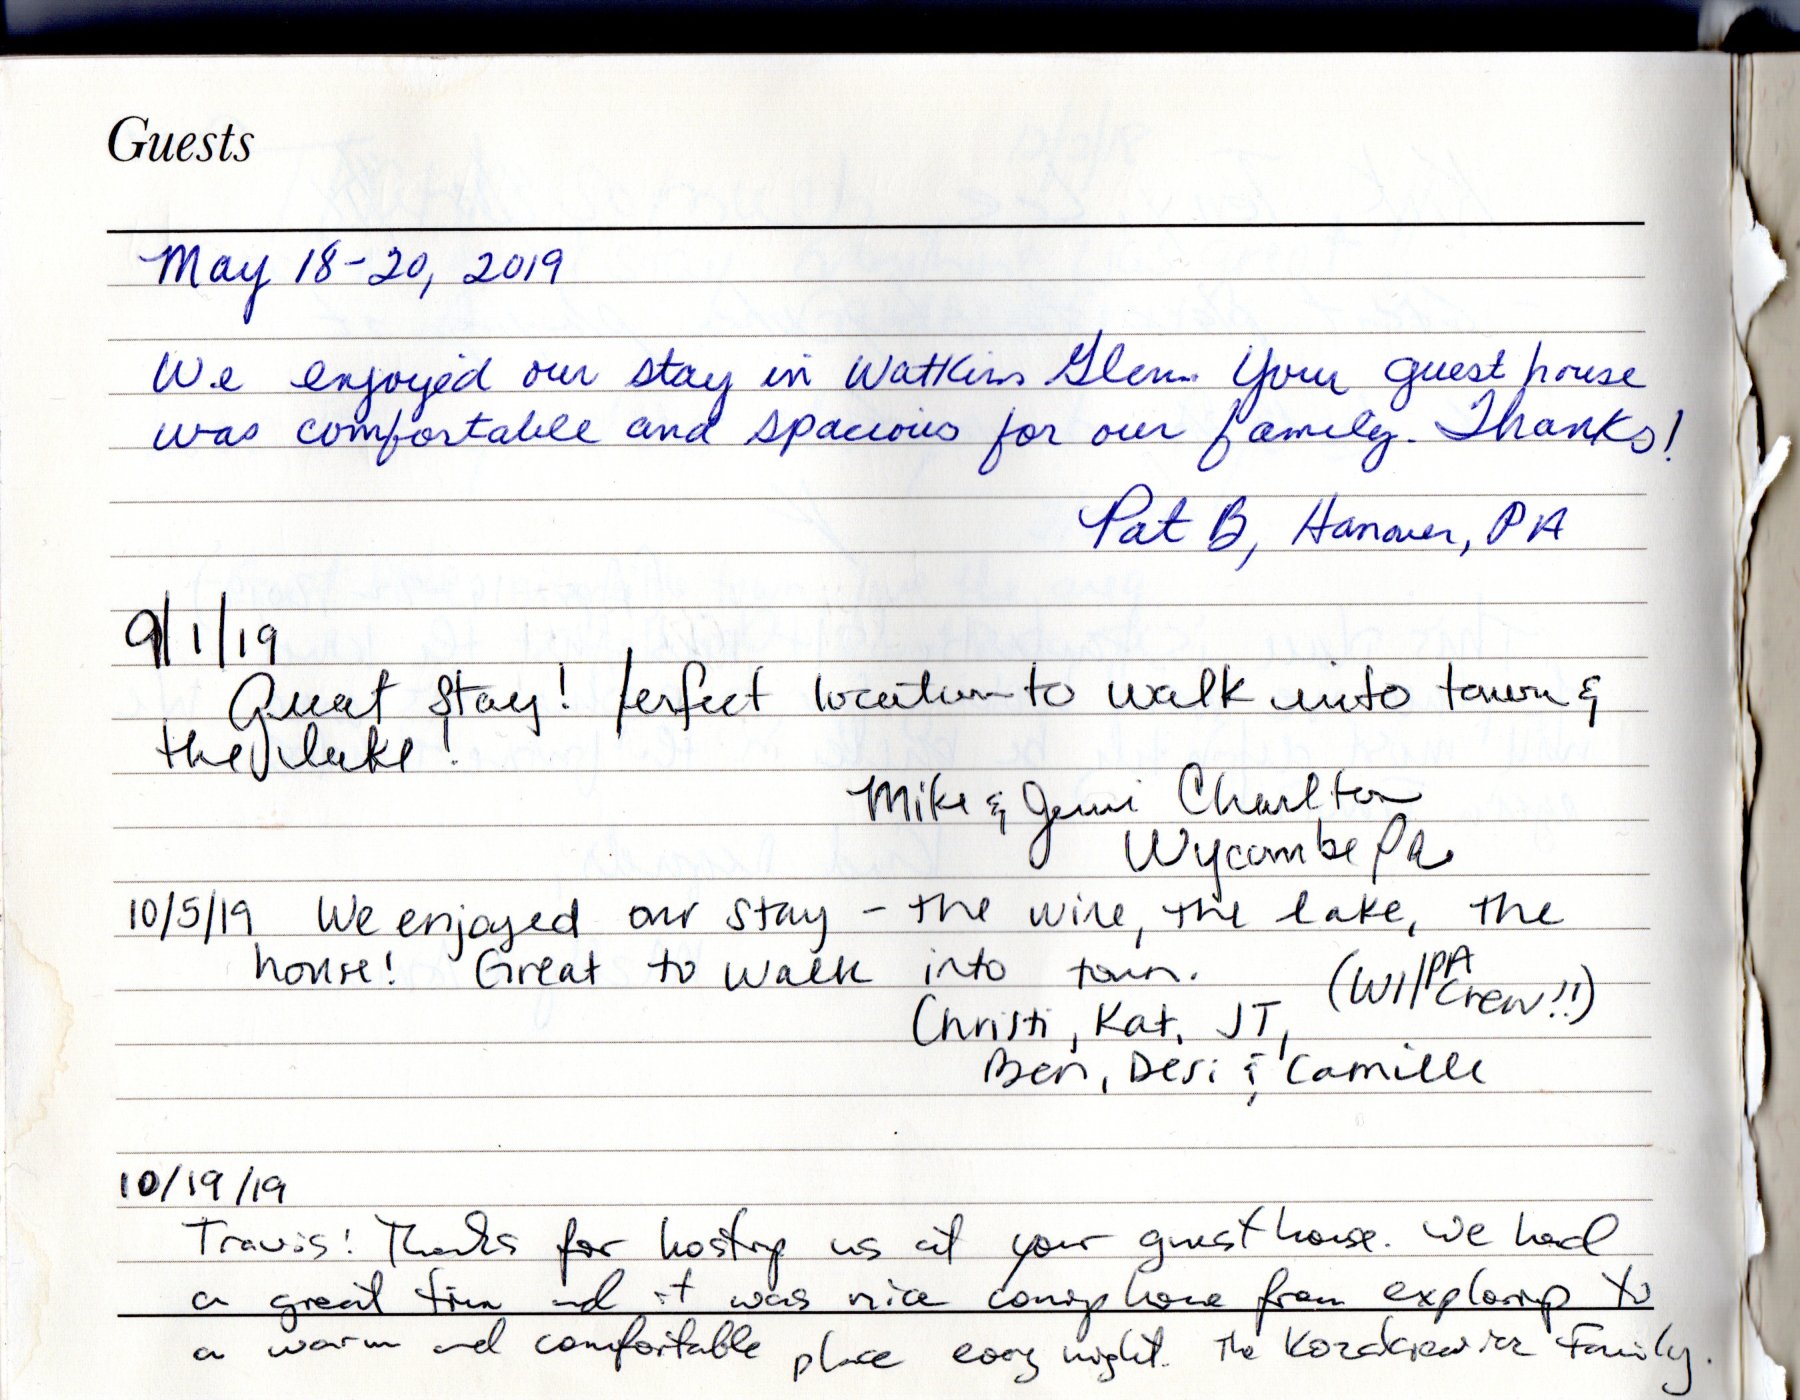 Guests
May 18-20, 2019
We enjoyed our stay in Watkins Glen. Your guest house
was comfortable and spacious for our family. Thanks!
Pat B, Hanover, PA
9/1/19
Great Stay! Perfect location to walk into town &
the lake!
Mike & Jenni Charlton
Wycombe PA
10/5/19 We enjoyed our stay - the wine, the lake, the
house! Great to walk into town.
(WI/PA Crew!!)
Christi, Kat, JT,
Ben, Desi & Camille
10/19/19
Travis! Thanks for hosting us at your guest house. We had
a great time and it was nice coming home from exploring to
a warm and comfortable place every night. The Kozakiewicz Family.